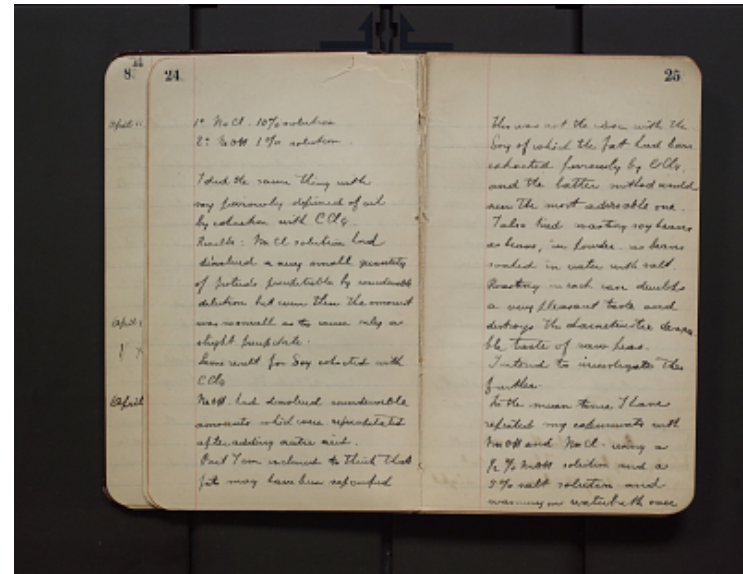 8
24
April 11
1° NaCl - 10% solution
2° NaOH 1% solution.
I did the same thing with
soy previously deprived of oil
by extraction with CCl4.
Results: NaCl solution had
dissolved a very small quantity
of proteids precipitable by considerable
dilution but even then the amount
April
was so small as to cause only a
slight precipitate.
Same result for Soy extracted with
CCl4
April
NaOH had dissolved considerable
amounts which were reprecipitated
after adding acetic acid.
But I am inclined to think that
fat may have been saponified
25
This was not the case with the
Soy of which the fat had been
extracted previously by CCl4
and the latter method would
seem the most advisable one.
I also tried roasting soy beans
as beans, in powder, as beans
soaked in water with salt.
Roasting in each case develops
a very pleasant taste and
destroys the characteristic
ble taste of raw peas.
I intend to investigate this
further.
In the mean time I have
repeated my experiments with
NaOH and NaCl using a
½ % NaOH solution and a
5% salt solution and
warming on waterbath over